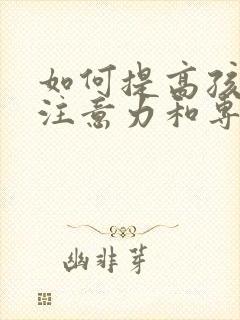 如何提高孩
注意力和专
幽非芽